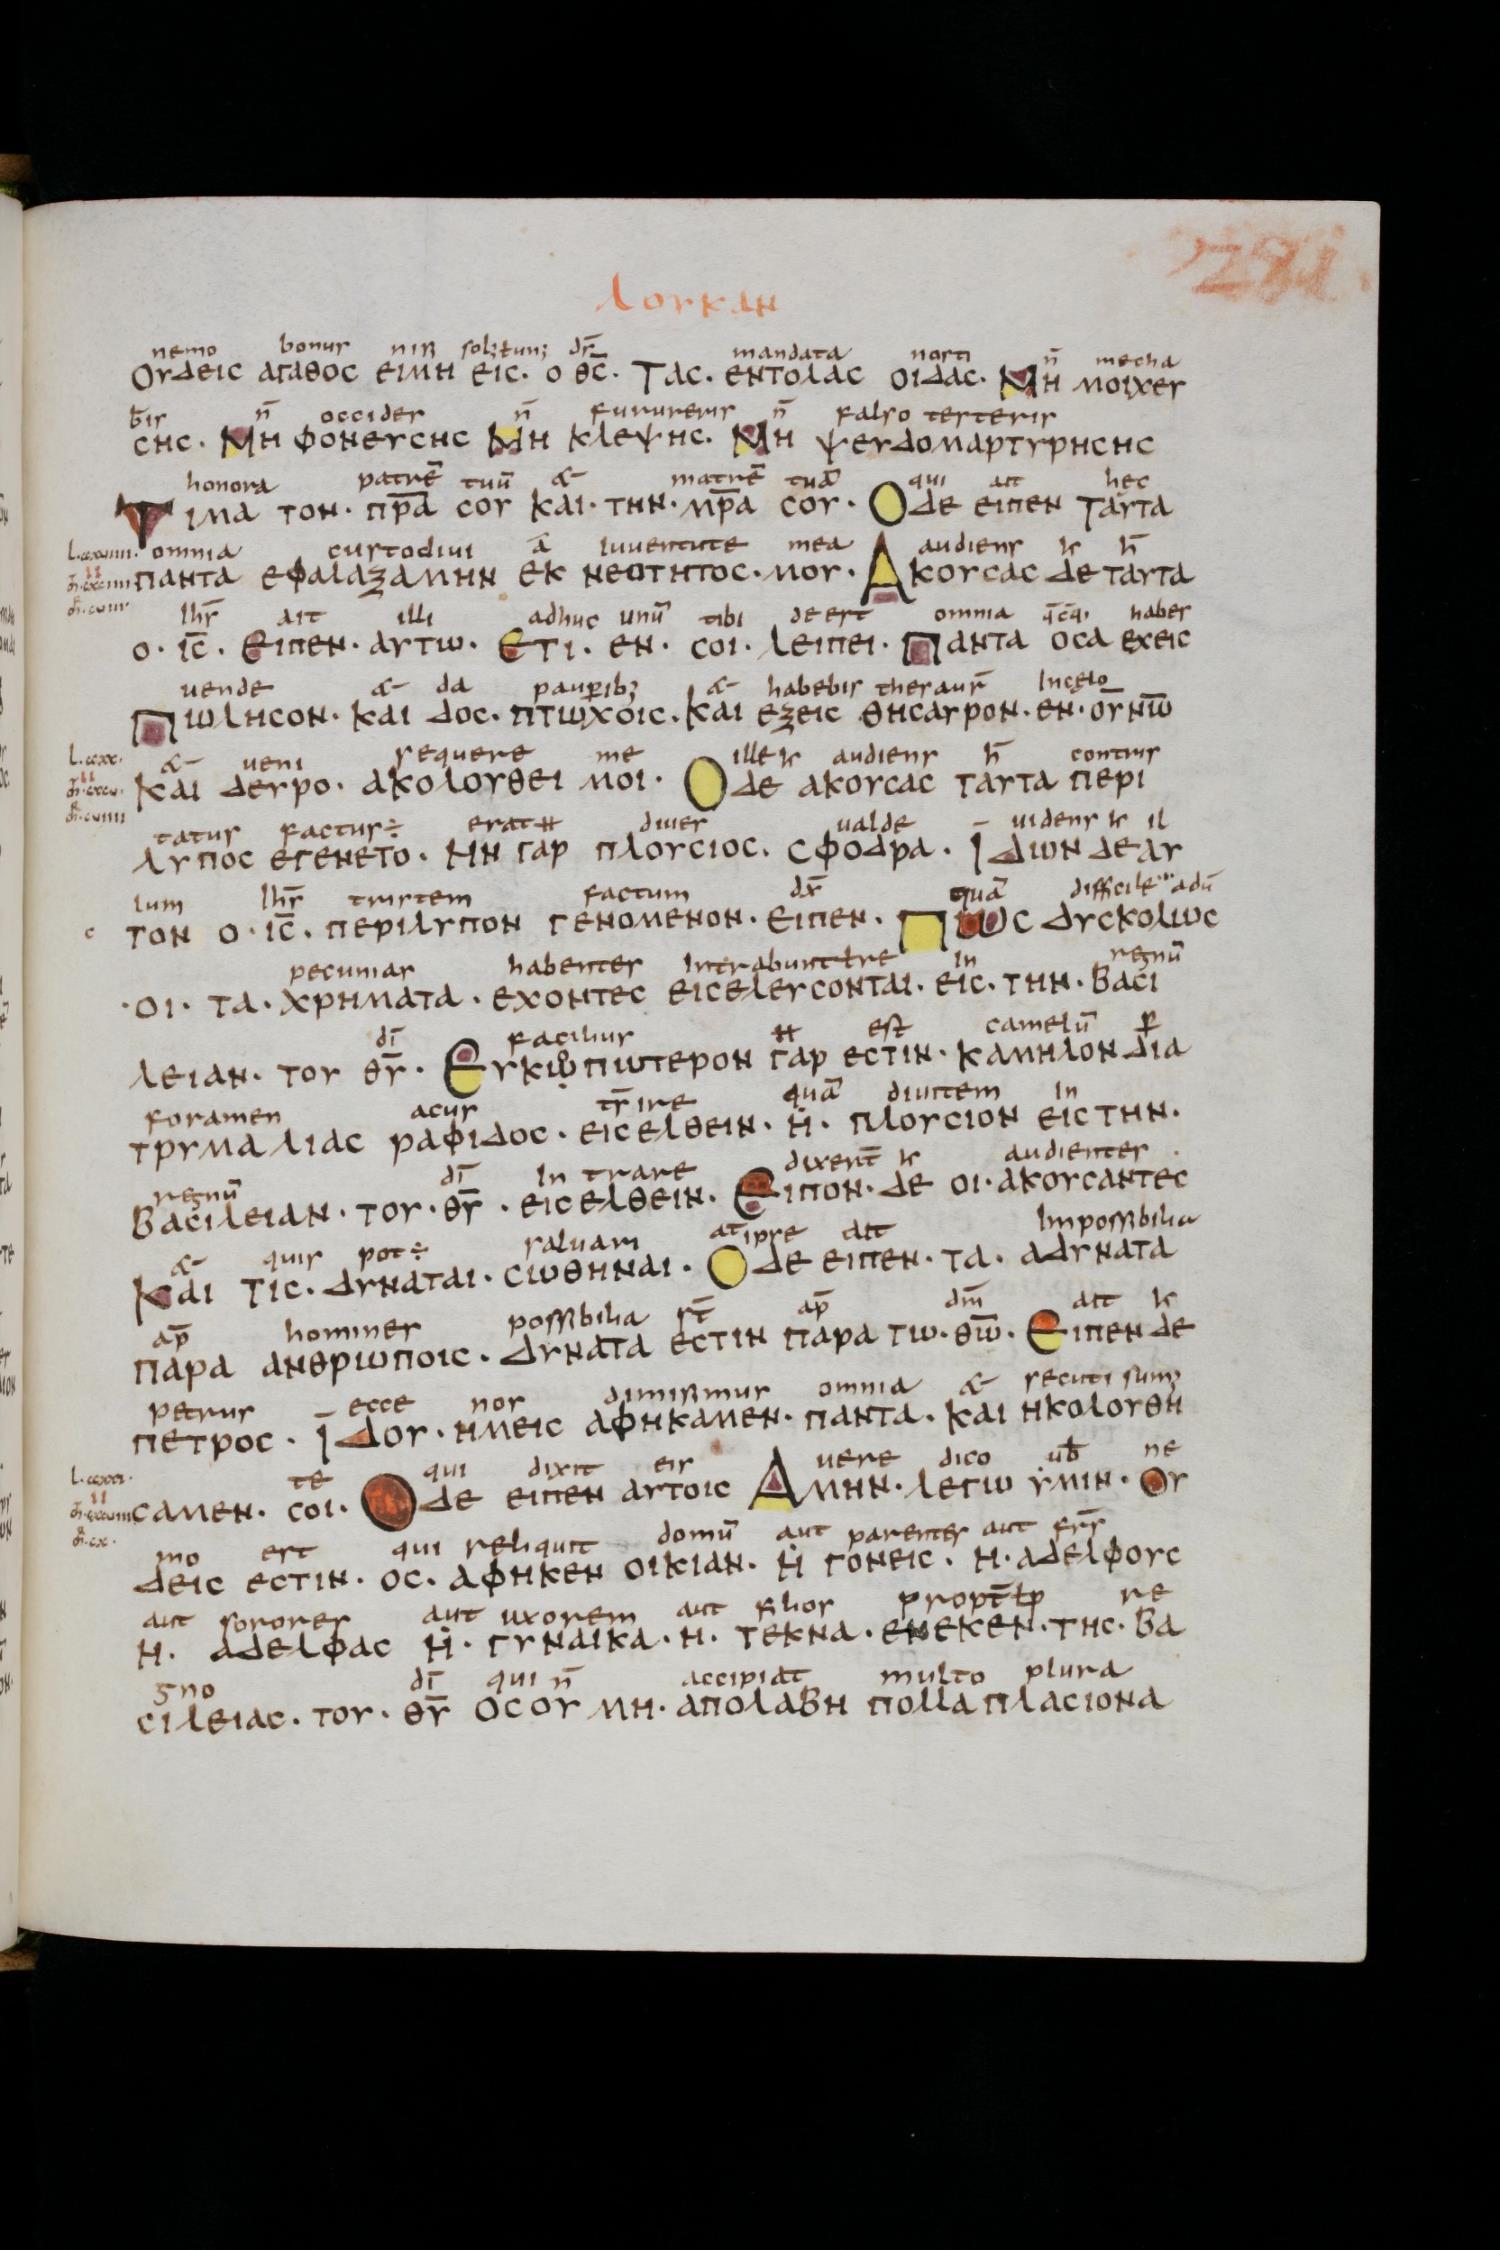 281
λουκαν
nemo bonus nisi sol; ł un; d̄s mandata nosti n̄ mecha
Ουδεις αγαθος ειμη εις· ο θ̅ς̅· Τας· εντολας οιδας· Μη μοιχευ
bis n̄ occides n̄ n̄ falso testeris
σης· Μη φονευσης Μη κλεψης· Μη ψευδομαρτυρησης
honora patrē tuū & matrē tuā qui ait hec
Τιμα τον· π̅ρ̅α̅ σου και· την· μ̅ρ̅α̅ σου· Ο δε ειπεν Ταυτα
omnia custodiui ā iuuentute mea audiens ħ
παντα εφαλαξαμην εκ νεοτητος· μου· Ακουσας δε ταυτα
ihs̄ ait illi adhuc unū tibi deest omnia q̄cq̄· habes
ο· ι̅ς̅· Ειπεν· αυτω· Ετι· εν· σοι· λειπει· Παντα οσα εχεις
uende & da paup̱ib; & habebis thesaur̄ in cęlo
Πωλησον· και δος· πτωχοις· και εξεις θησαυρον· εν· ου̅ν̅ω̅
& ueni sequere me ille audiens ħ contris
και δευρο· ακολουθει μοι· Ο δε ακουσας ταυτα περι
tatus factus÷ erat diues ualde uidens il
λυπος εγενετο· Ην γαρ πλουσιος· σφοδρα· Ιδων δε αυ
lum ihs̄ tristem factum dx̄ quā difficile
τον ο· ι̅ς̅· περιλυπον γενομενον· ειπεν· Πως δυσκολως
pecunias habentes intrabunt in regnū
·οι· τα· χρηματα· εχοντες εισελευσονται· εις· την· βασι
dī facilius est camelū p̱
λειαν· του θ̅υ̅· Ευκωπωτερον γαρ εστιν· καμηλον δια
foramen acus tr̄ire quā diuitem in
τρυμαλιας ραφιδος· εισελθειν· η· πλουσιον εις την·
regnū dī intrare dixer̄t audientes
βασιλειαν· του· θ̅υ̅· εισελθειν· Ειπον· δε οι· ακουσαντες
& quis pot÷ saluari at ipse ait impossibilia
Και Τις· δυναται· σωθηναι· Ο δε ειπεν· τα· αδυνατα
ap̄ homines possibilia s̄t ap̄ dm̄ ait
παρα ανθρωποις· Δυνατα εστιν παρα τω· θ̅ω̅· Ειπεν δε
petrus ecce nos dimisimus omnia & secuti sum;
πετρος· Ιδου· ημεις αφηκαμεν· παντα· και ηκολουθη
te qui dixit eis uere dico ub̄ ne
σαμεν· σοι· Ο δε ειπεν αυτοις Αμην· λεγω υμιν· Ου
mo est qui reliquit domū aut parentes aut fr̄s
δεις εστιν· ος· αφηκεν οικιαν· η γονεις· η· αδελφους
aut sorores aut uxorem aut filios re
η· αδελφας η· γυναικα· η· τεκνα· ενεκεν· της· βα
gno dī qui n̄ accipiat multo plura
σιλειας· του· θ̅υ̅ Ος ου μη· απολαβη πολλαπλασιονα